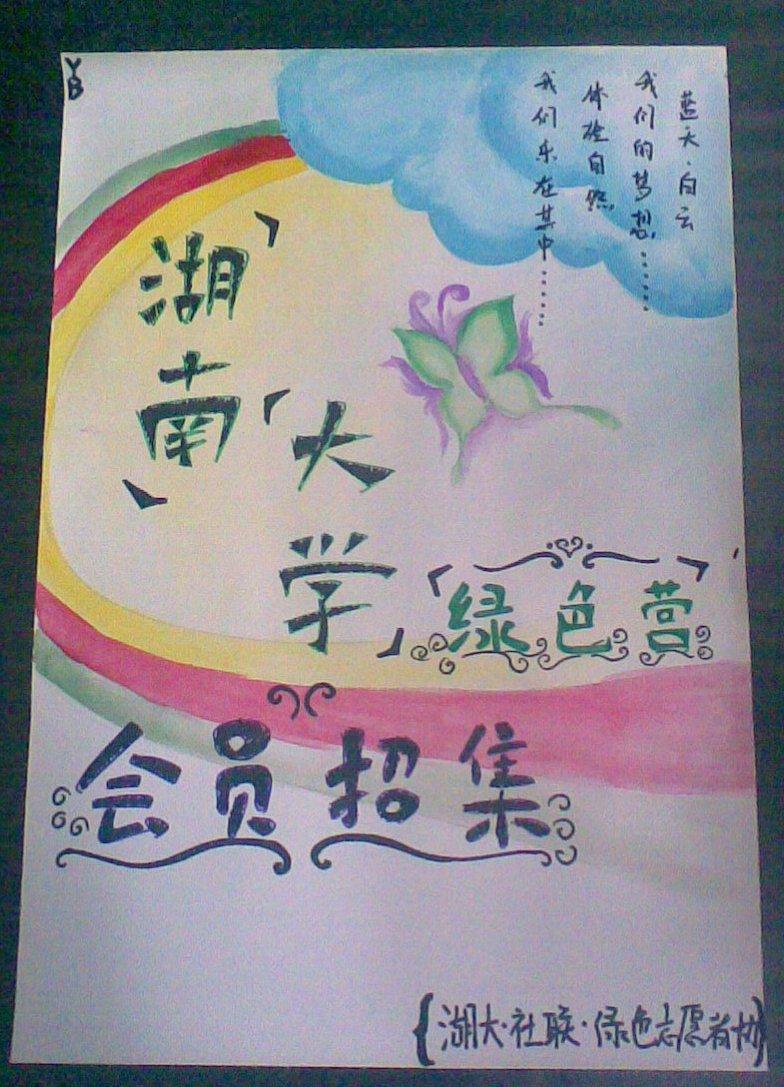 YB
蓝天·白云
我们的梦想……
体验自然
我们乐在其中……
湖南
大学
绿色营
会员招集
{湖大·社联·绿色志愿者协}